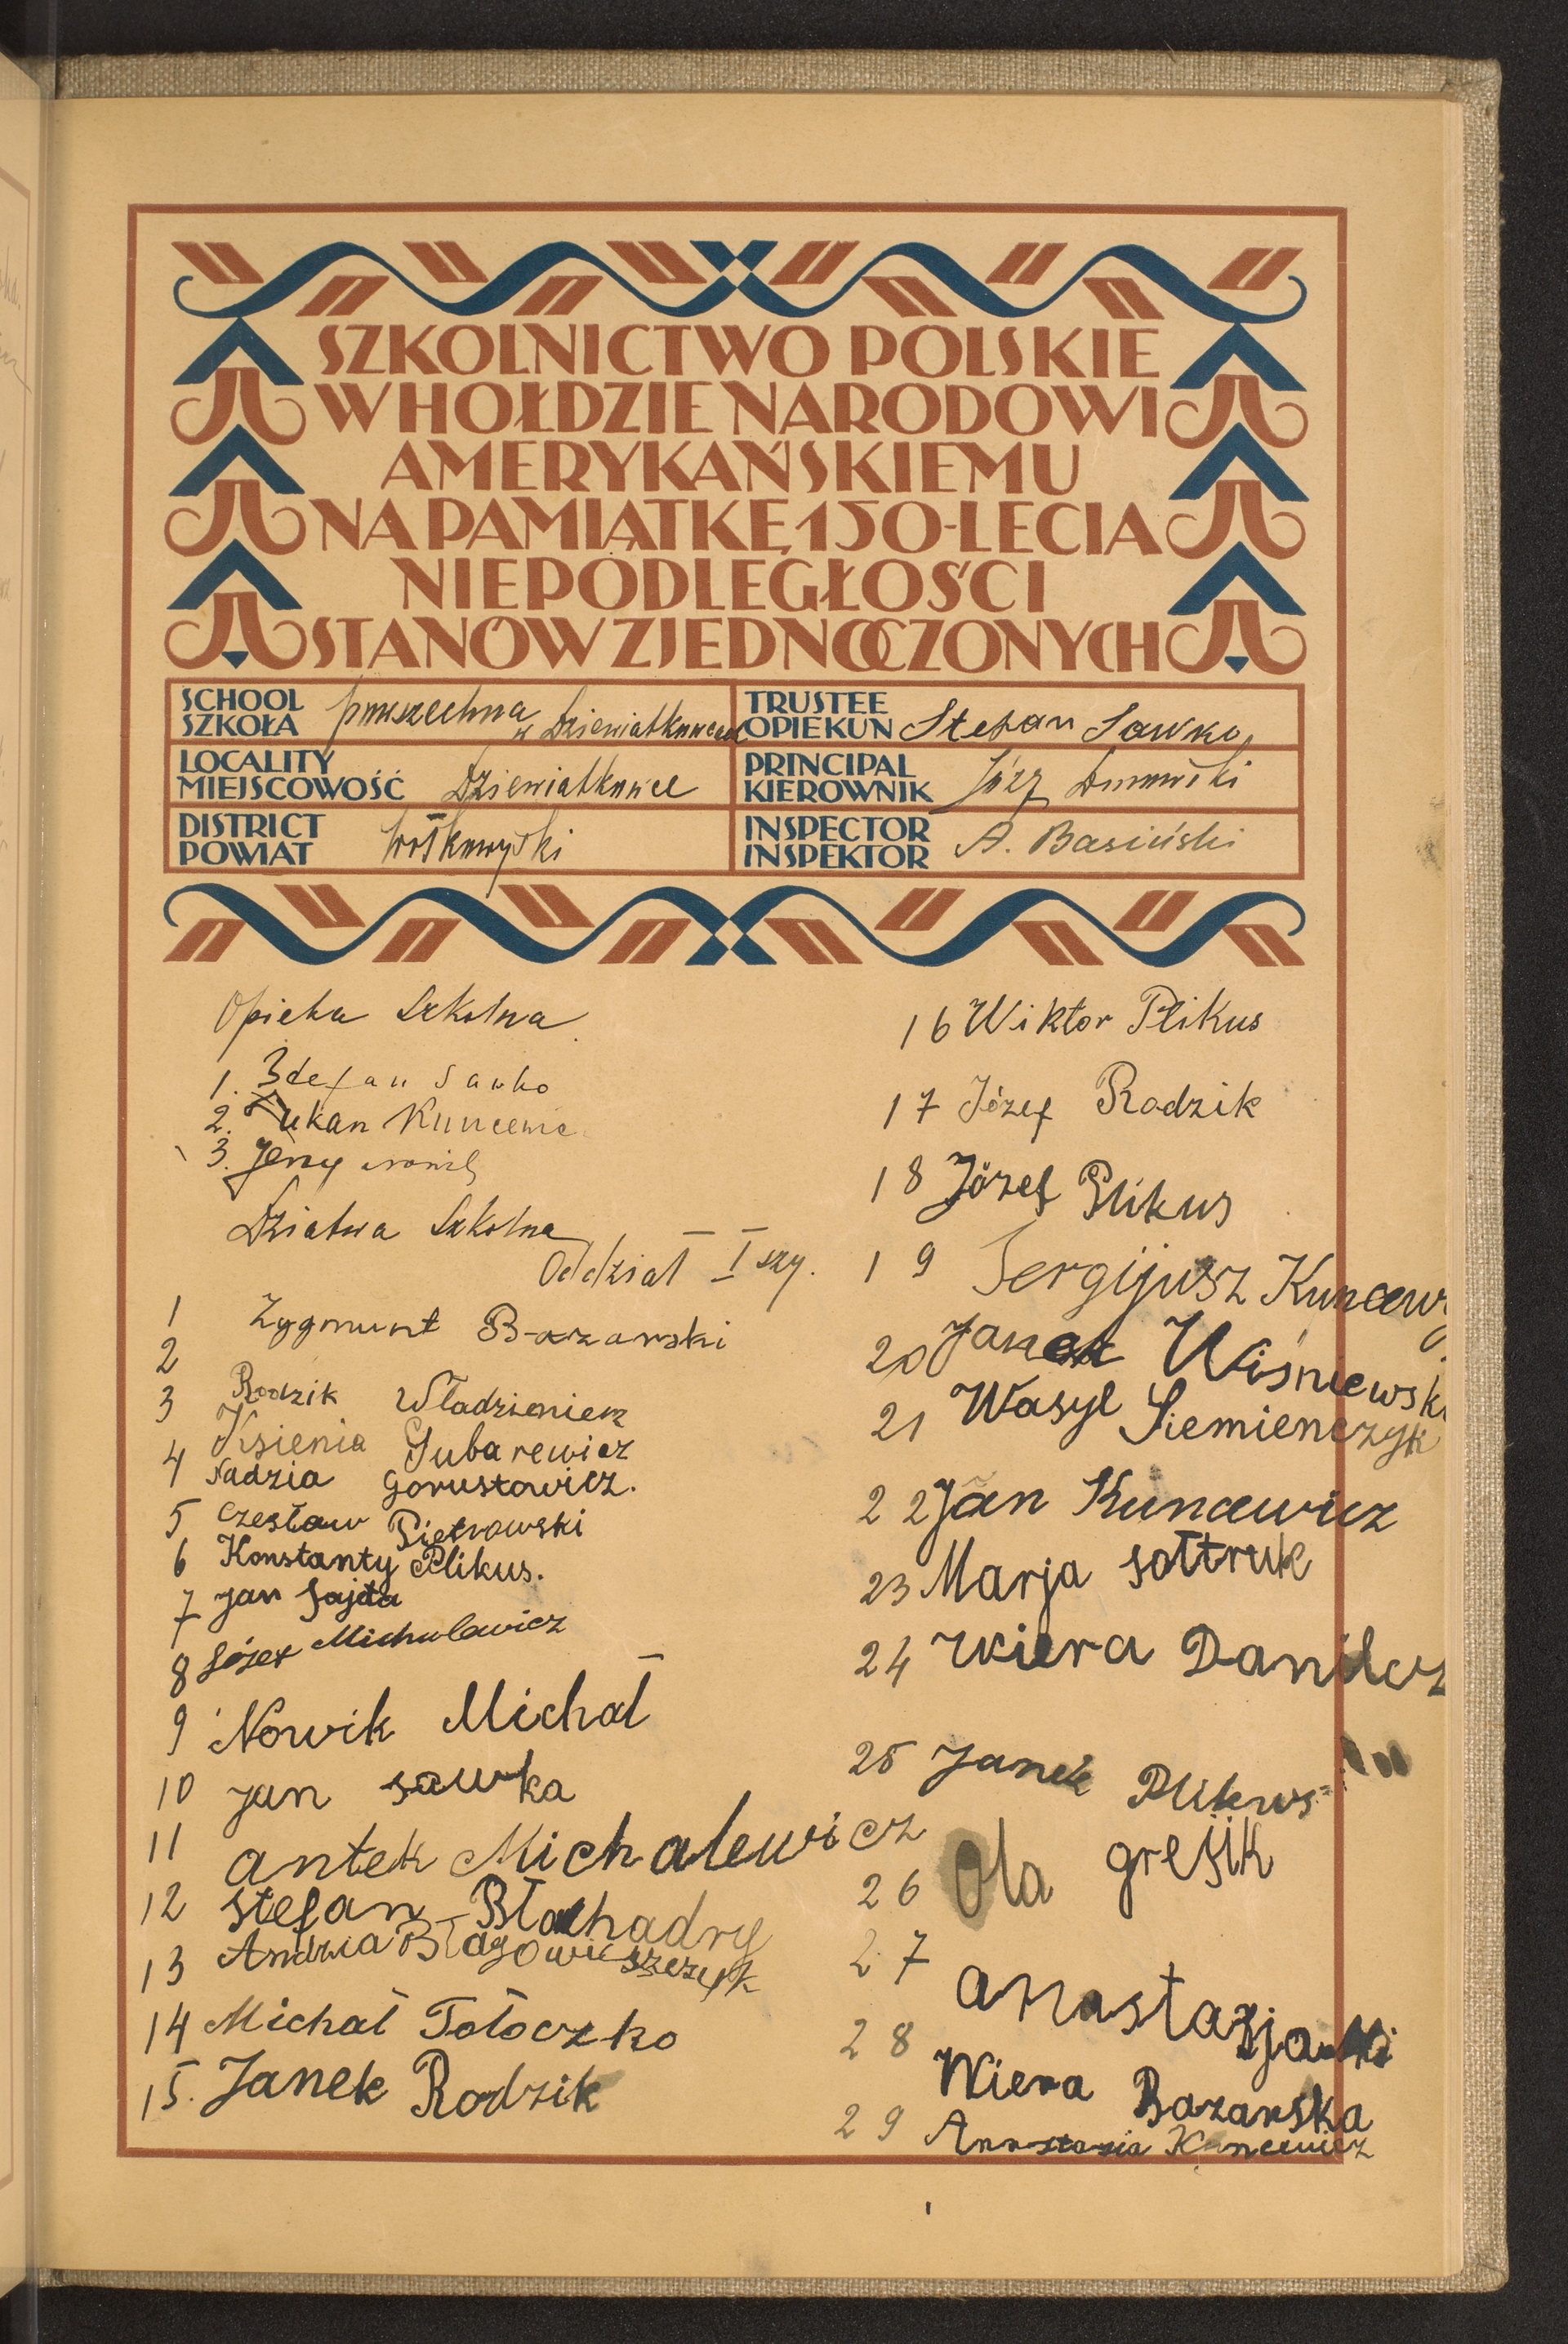 SZKOLNICTWO POLSKIE
W HOŁDZIE NARODOWI
AMERYKAŃSKIEMU
NA PAMIĄTKĘ 150-LECIA
NIEPODLEGŁOŚCI
STANÓW ZJEDNOCZONYCH
SCHOOL
SZKOŁA powszechna w Dziewiatkowcach
TRUSTEE
OPIEKUN Stefan Sawko
LOCALITY
MIEJSCOWOŚĆ Dziewiatkowce
PRINCIPAL
KIEROWNIK Józf Dmowski
DISTRICT
POWIAT Wołkowyski
INSPECTOR
INSPEKTOR A. Basiński
Opieka Szkolna
1. Stefan Sawko
2. Łukan
3. Jerzy
Dziatwa Szkolna
Oddział I szy.
1 Zygmunt Bazarski
2 Rodzik Władzimierz
3 Ksienia Gubarewicz
4 Nadzia Gorustowicz.
5 Czesław Pietrowski
6 Konstanty Plikus.
7 Jan Sajda
8 Józef Michalewicz
9 Nowik Michał
10 Jan sawka
11 antek Michalewicz
12 stefan
13
14 Michał Tołoczko
15. Janek Rodzik
16 Wiktor Plikus
17 Józef Rodzik
18 Józef Plikus
19 Sergijusz Kuncewi
20 Janek Wiśniewski
21 Wasyl Siemienczyk
22 Jan Kuncewicz
23 Marja sołtruk
24 Wiera Danilcz
25 Janek Plikus
26 Ola gresik
27 anastazja
28 Wiera Bazarska
29 Anastazia Kuncewicz